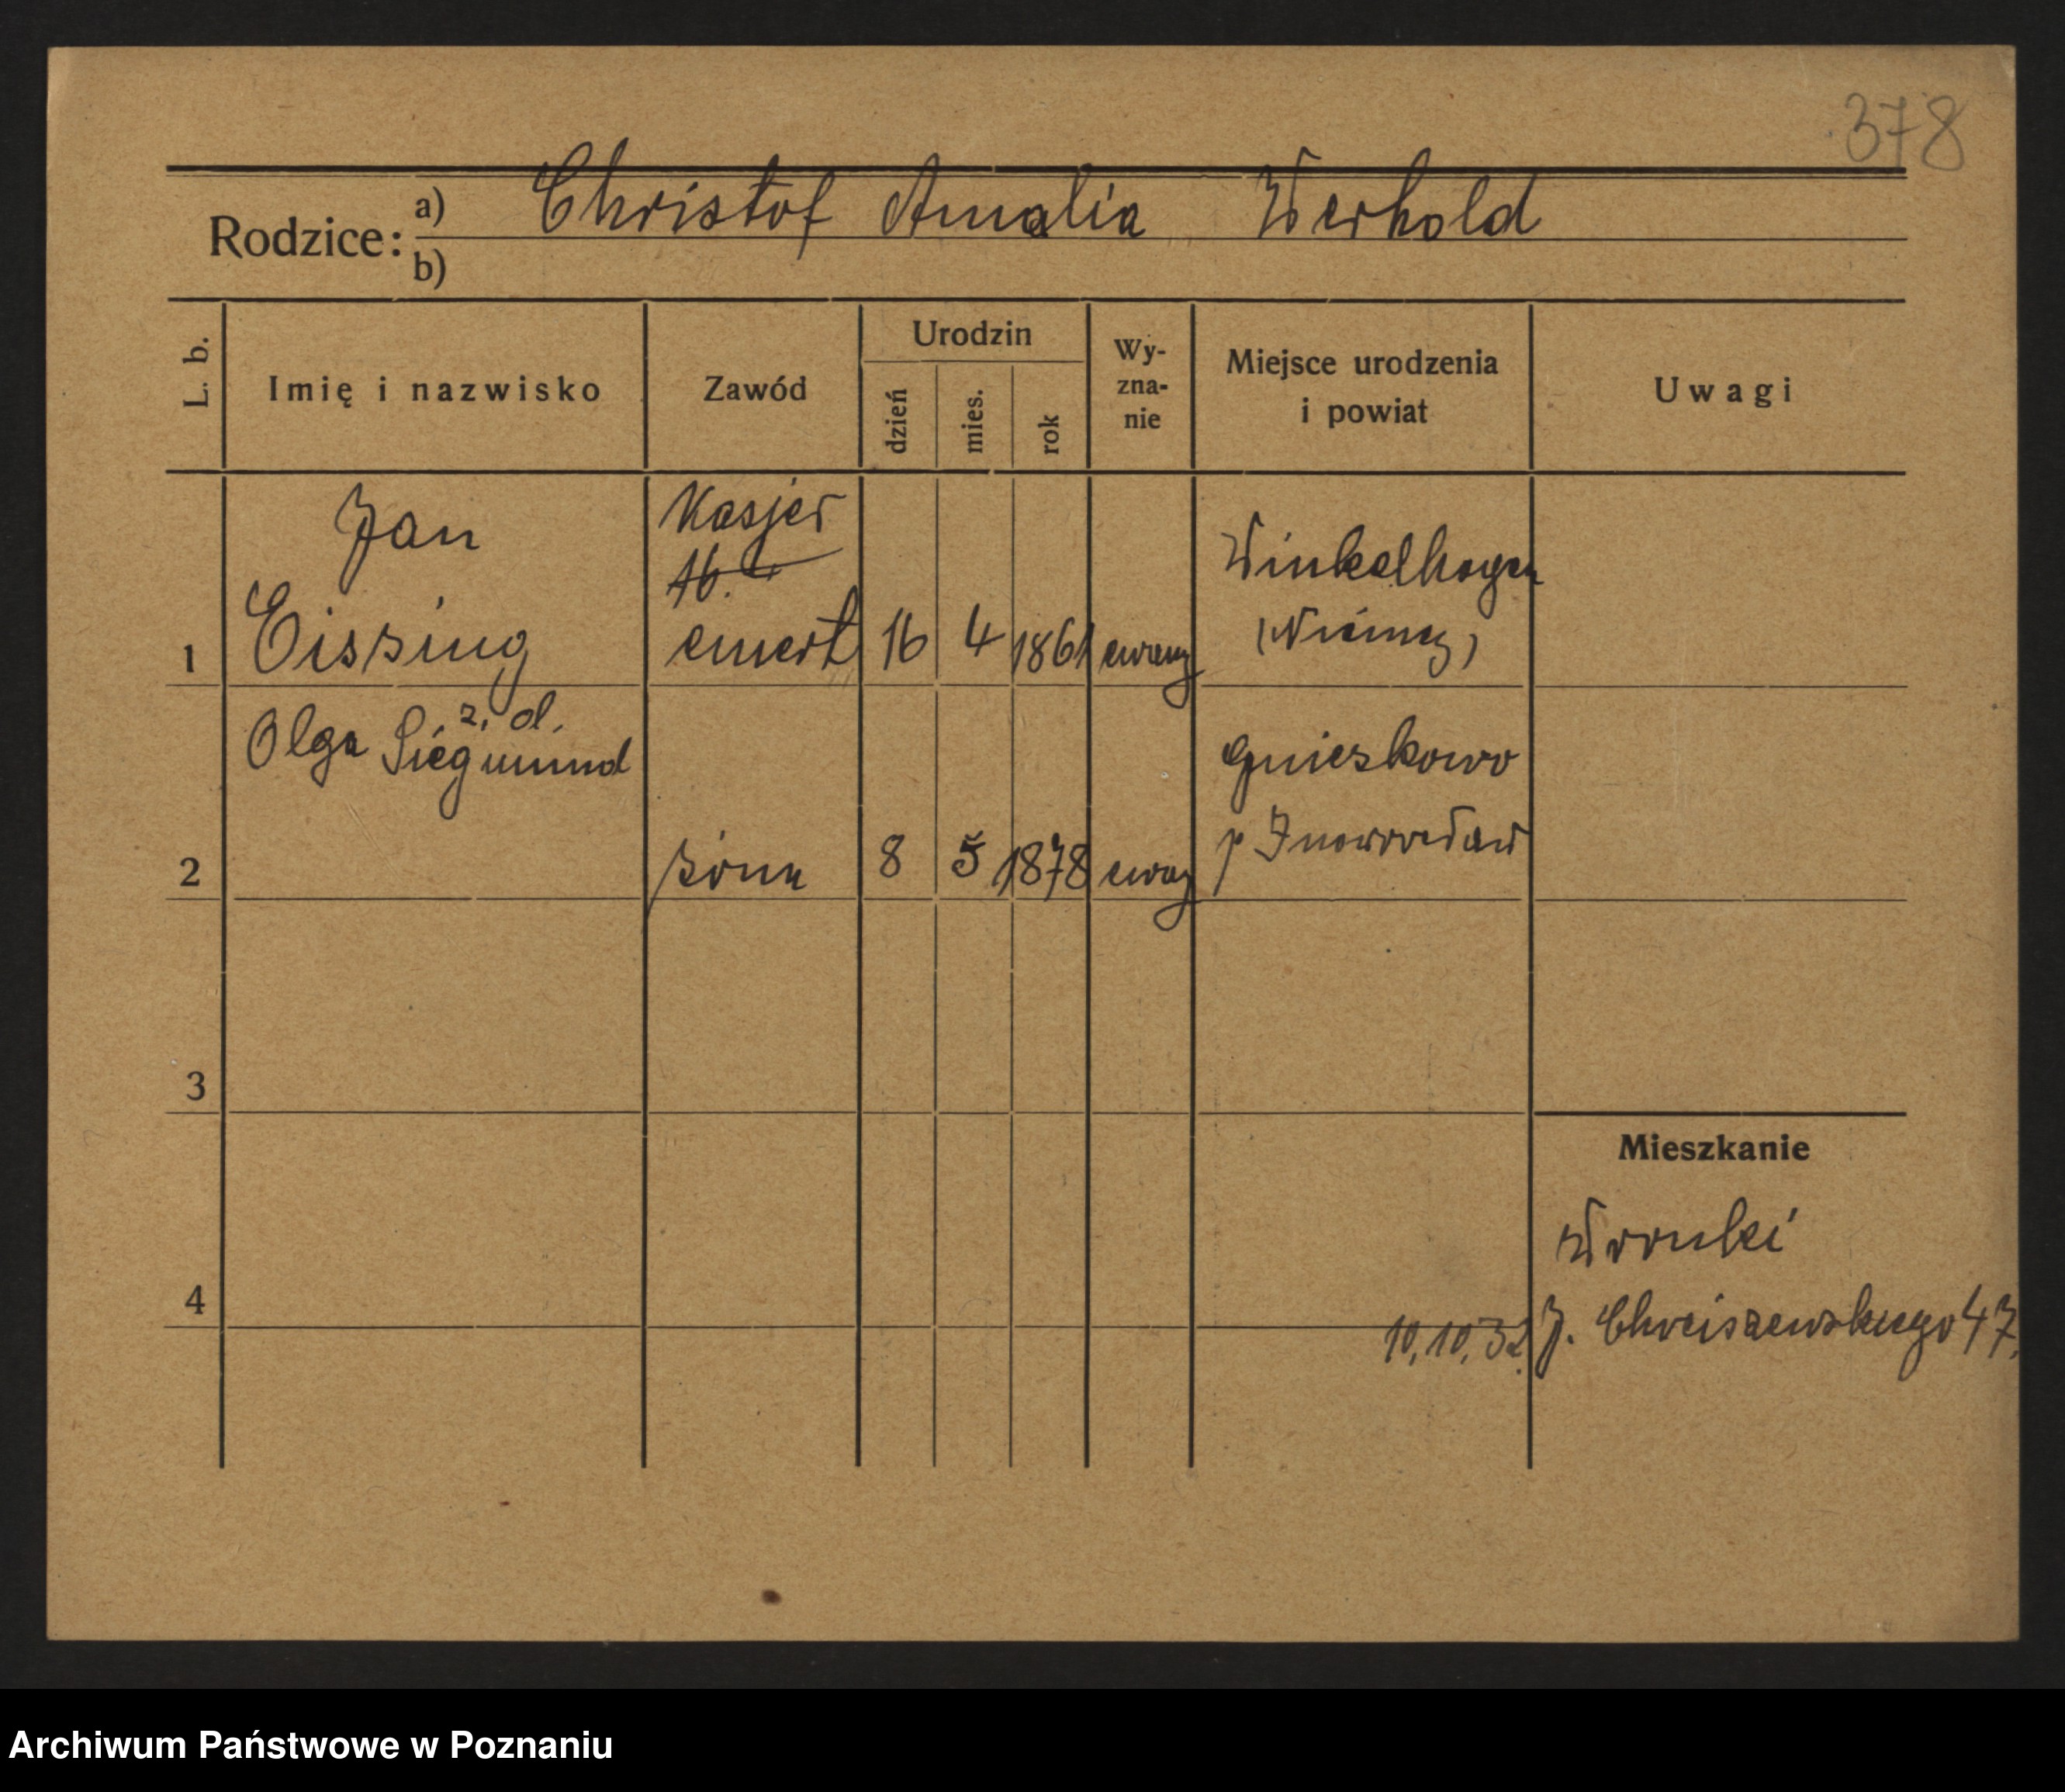 378
Rodzice: a) Christof Amalia Werhold
b)
L. b.
Imię i nazwisko
Zawód
Urodzin
dzień
mies.
rok
Wy-
zna-
nie
Miejsce urodzenia
i powiat
Uwagi
Jan
Eissing
Kasjer
emert
1
16 4 1861 ewang
Winkelhagen
(Niemcy)
z. d.
Olga Siegmund
2
żona 8 5 1878 ewag
Gniewkowo
p Inowrocław
3
4
Mieszkanie
Wronki
10.10.32 J. Chociszewskiego 47.
Archiwum Państwowe w Poznaniu